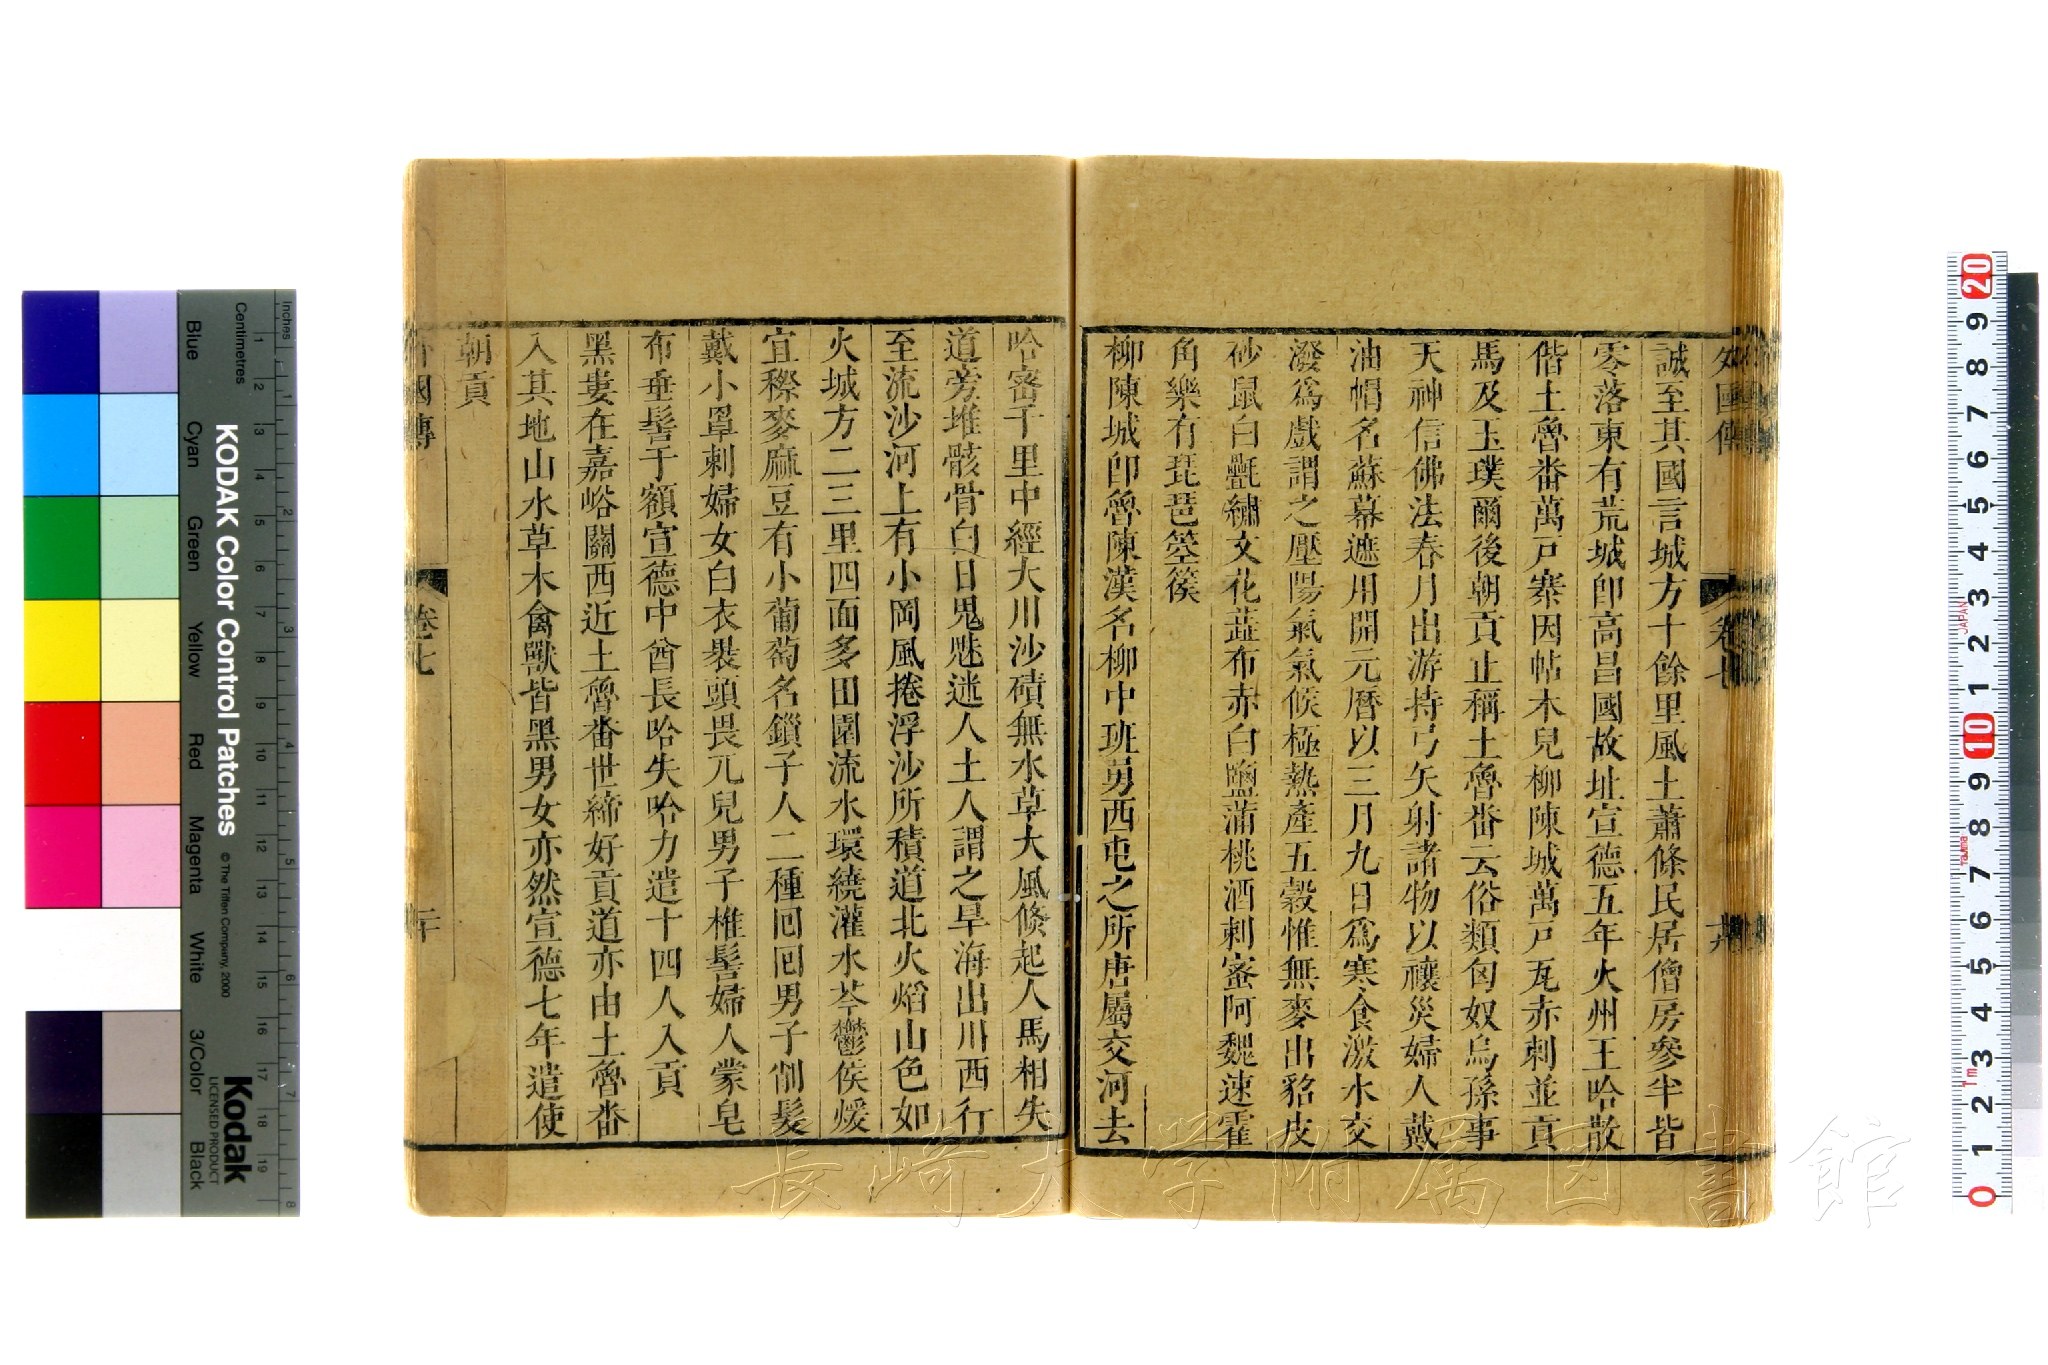 外國傳 卷七
誠至其國言城方十餘里風土蕭條民居僧房參半皆
零落東有荒城卽高昌國故址宣德五年火州王哈散
偕土魯番萬戸寨因帖木兒柳陳城萬戸瓦赤剌並貢
馬及玉璞爾後朝貢止稱土魯番云俗類匈奴烏孫事
天神信佛法春月出游持弓矢射諸物以禳災婦人戴
油帽名蘇幕遮用開元曆以三月九日爲寒食激水交
潑爲戲謂之壓陽氣氣候極熱產五穀惟無麥出貂皮
砂鼠白氎繡文花蕋布赤白鹽蒲桃酒刺蜜阿魏速霍
角樂有琵琶箜篌
柳陳城卽魯陳漢名柳中班勇西屯之所唐屬交河去
哈密千里中經大川沙磧無水草大風倏起人馬相失
道旁堆骸骨白日鬼魅迷人土人謂之旱海出川西行
至流沙河上有小岡風捲浮沙所積道北火熖山色如
火城方二三里四面多田園流水環繞灌水芩鬱侯煖
宜穄麥麻豆有小葡萄名鎖子人二種囘囘男子削髮
戴小罩剌婦女白衣裝頭畏兀兒男子椎髻婦人蒙皂
布垂髻于額宣德中酋長哈失哈力遣十四人入貢
黑婁在嘉峪關西近土魯番世締好貢道亦由土魯番
入其地山水草木禽獸皆黑男女亦然宣德七年遣使
朝貢
外國傳
卷七
二十
長崎大学附属図書館
KODAK Color Control Patches
© The Tiffen Company, 2000
Kodak
LICENSED PRODUCT
Blue
Cyan
Green
Yellow
Red
Magenta
White
3/Color
Black
Centimetres
Inches
1 2 3 4 5 6 7 8 9 10 11 12 13 14 15 16 17 18 19
1 2 3 4 5 6 7 8
20 9 8 7 6 5 4 3 2 1 10 9 8 7 6 5 4 3 2 1 0
JAPAN
1m